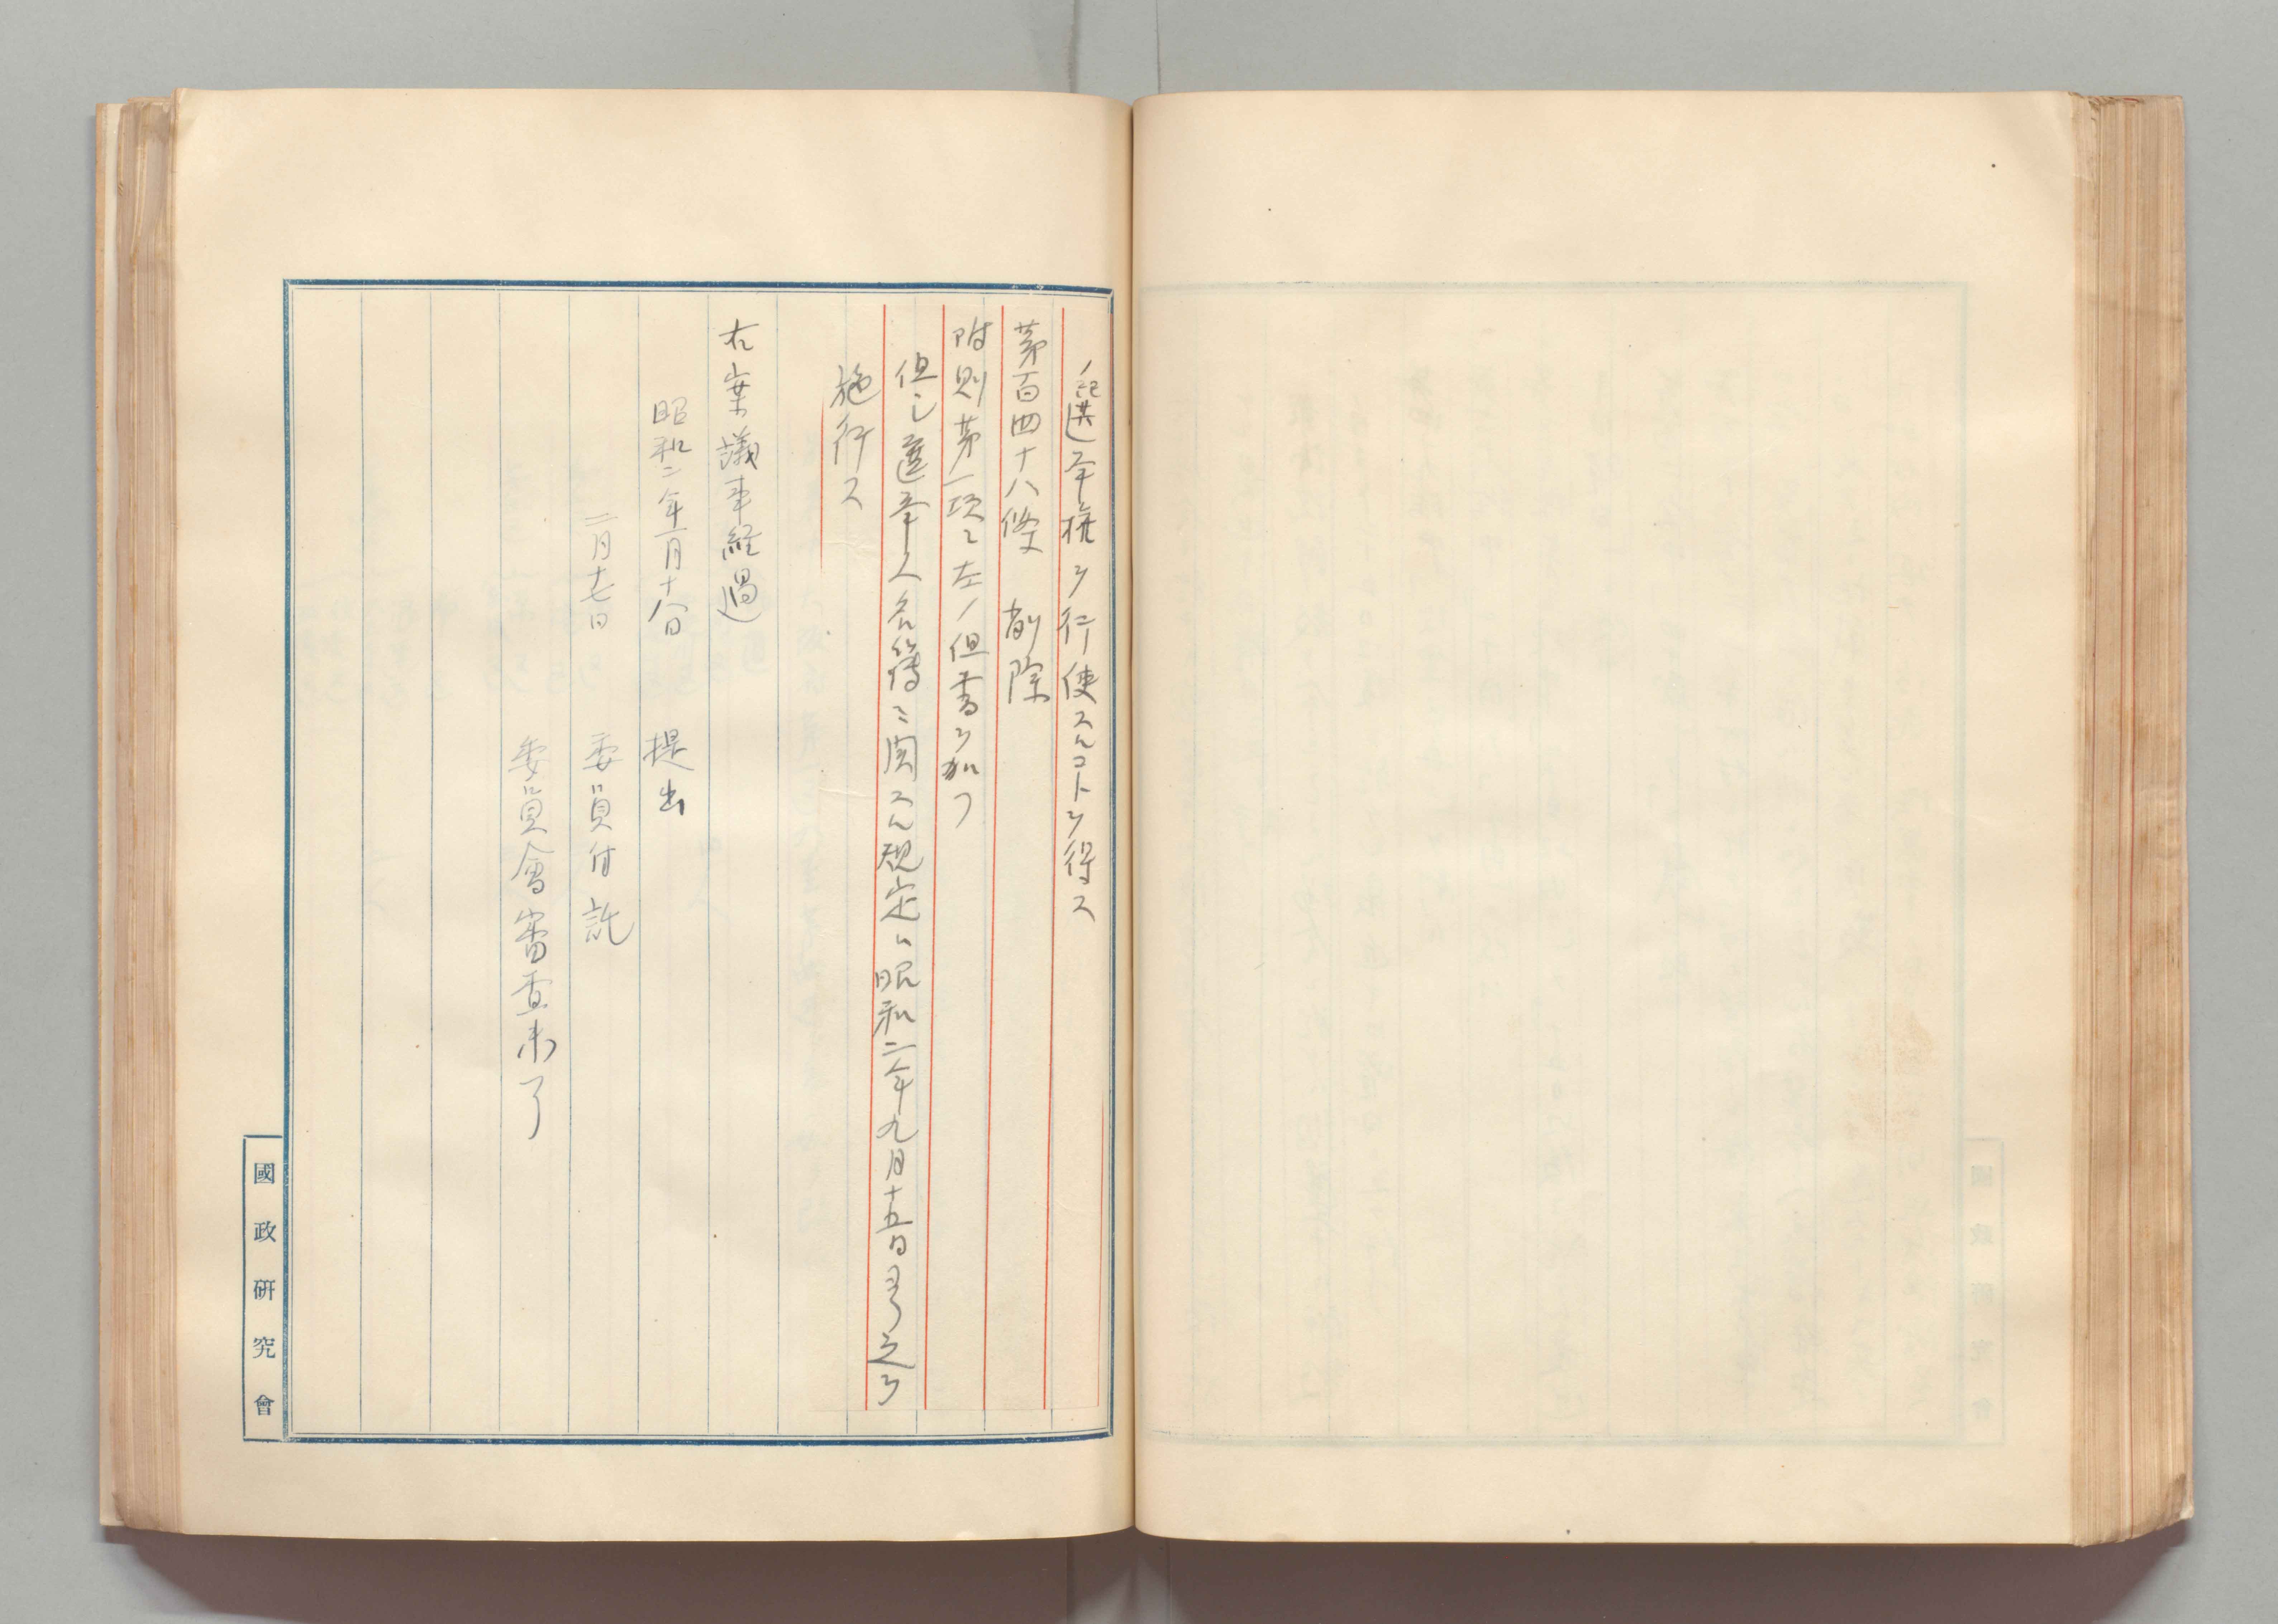 選挙権ヲ行使スルコトヲ得ス
第百四十八條　削除
附則第一項ニ左ノ但書ヲ加フ
但シ選挙人名簿ニ関スル規定ハ昭和二年九月十五日ヨリ之ヲ
施行ス
右案議事経過
昭和二年二月十八日　提出
二月十七日　委員付託
委員會審査未了
國政研究會